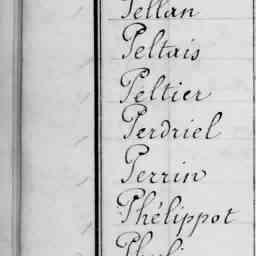 Pellan
Peltais
Peltier
Perdriel
Perrin
Phélippot